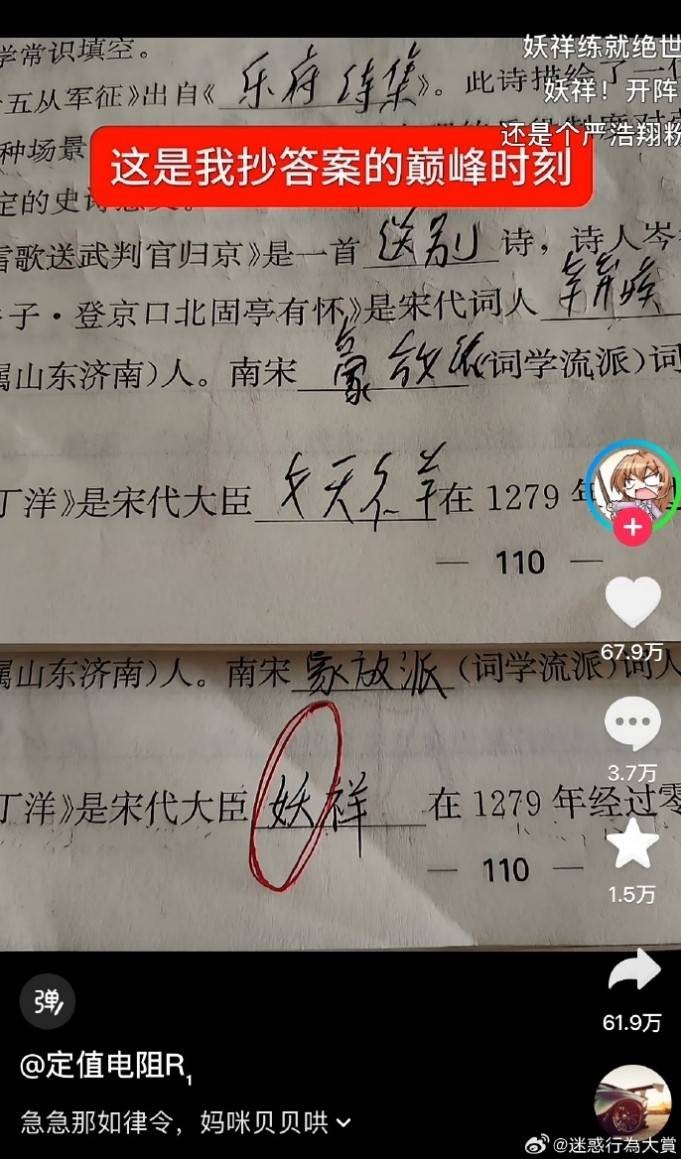 学常识填空。
妖祥练就绝世
十五从军征》出自《乐府诗集》。此诗描绘了一
妖祥！开阵
种场景
还是个严浩翔粉
这是我抄答案的巅峰时刻
定的史诗意义。
雪歌送武判官归京》是一首送别诗，诗人岑
子·登京口北固亭有怀》是宋代词人辛弃疾
属山东济南）人。南宋豪放派（词学流派）词
丁洋》是宋代大臣文天祥在1279年
— 110 —
67.9万
属山东济南）人。南宋豪放派（词学流派）词人
3.7万
丁洋》是宋代大臣妖祥在1279年经过零
— 110 —
1.5万
61.9万
弹
@定值电阻R₁
急急那如律令，妈咪贝贝哄
@迷惑行為大賞